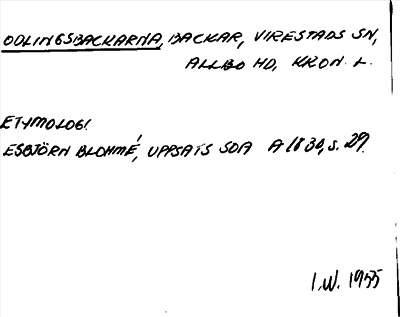 ODLINGSBACKARNA, BACKAR, VIRESTADS SN,
ALLBO HD, KRON. L.
ETYMOLOGI.
ESBJÖRN BLOHMÉ, UPPSATS SOA A 1830, S. 29.
I.W. 1955